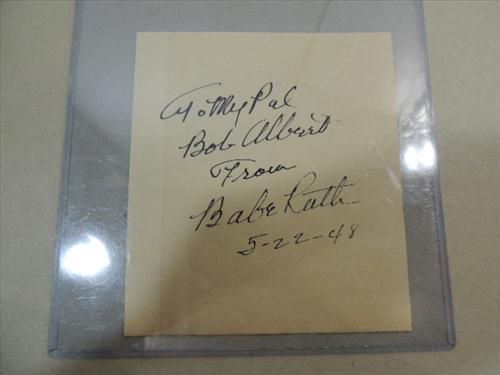 To My Pal
Bob Albert
From
Babe Ruth
5-22-48